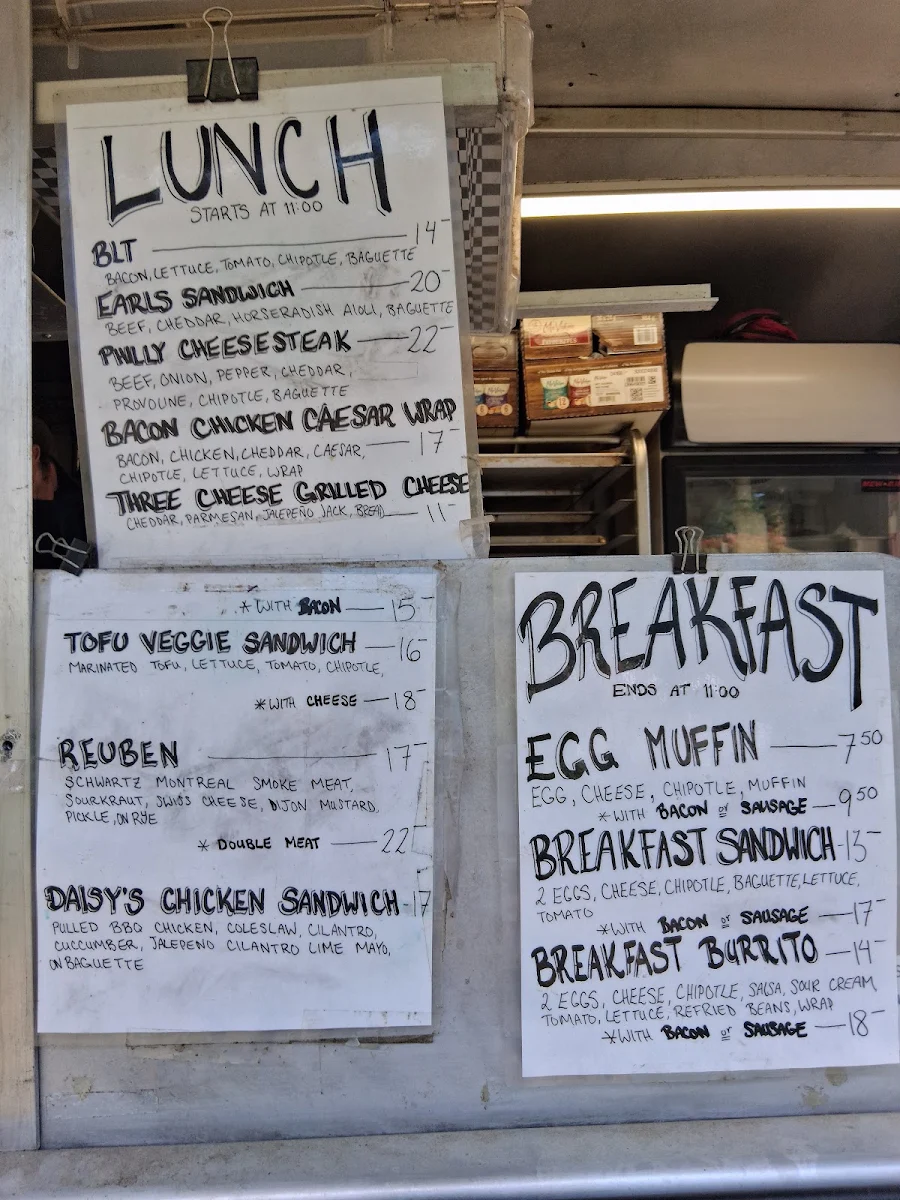 LUNCH
STARTS AT 11:00
BLT 14-
BACON, LETTUCE, TOMATO, CHIPOTLE, BAGUETTE
EARLS SANDWICH 20-
BEEF, CHEDDAR, HORSERADISH AIOLI, BAGUETTE
PHILLY CHEESESTEAK 22-
BEEF, ONION, PEPPER, CHEDDAR,
PROVOLINE, CHIPOTLE, BAGUETTE
BACON CHICKEN CAESAR WRAP
BACON, CHICKEN, CHEDDAR, CAESAR, 17-
CHIPOTLE, LETTUCE, WRAP
THREE CHEESE GRILLED CHEESE
CHEDDAR, PARMESAN, JALEPEÑO JACK, BREAD 11-
*WITH BACON 15-
TOFU VEGGIE SANDWICH 16-
MARINATED TOFU, LETTUCE, TOMATO, CHIPOTLE,
*WITH CHEESE 18-
REUBEN 17-
SCHWARTZ MONTREAL SMOKE MEAT,
SOURKRAUT, SWISS CHEESE, DIJON MUSTARD,
PICKLE, ON RYE
* DOUBLE MEAT 22-
DAISY'S CHICKEN SANDWICH 17
PULLED BBQ CHICKEN, COLESLAW, CILANTRO,
CUCCUMBER, JALEPENO CILANTRO LIME MAYO,
ON BAGUETTE
BREAKFAST
ENDS AT 11:00
EGG MUFFIN 7 50
EGG, CHEESE, CHIPOTLE, MUFFIN
*WITH BACON or SAUSAGE 9 50
BREAKFAST SANDWICH 13-
2 EGGS, CHEESE, CHIPOTLE, BAGUETTE, LETTUCE,
TOMATO
*WITH BACON or SAUSAGE 17-
BREAKFAST BURRITO 14-
2 EGGS, CHEESE, CHIPOTLE, SALSA, SOUR CREAM
TOMATO, LETTUCE, REFRIED BEANS, WRAP
*WITH BACON or SAUSAGE 18-